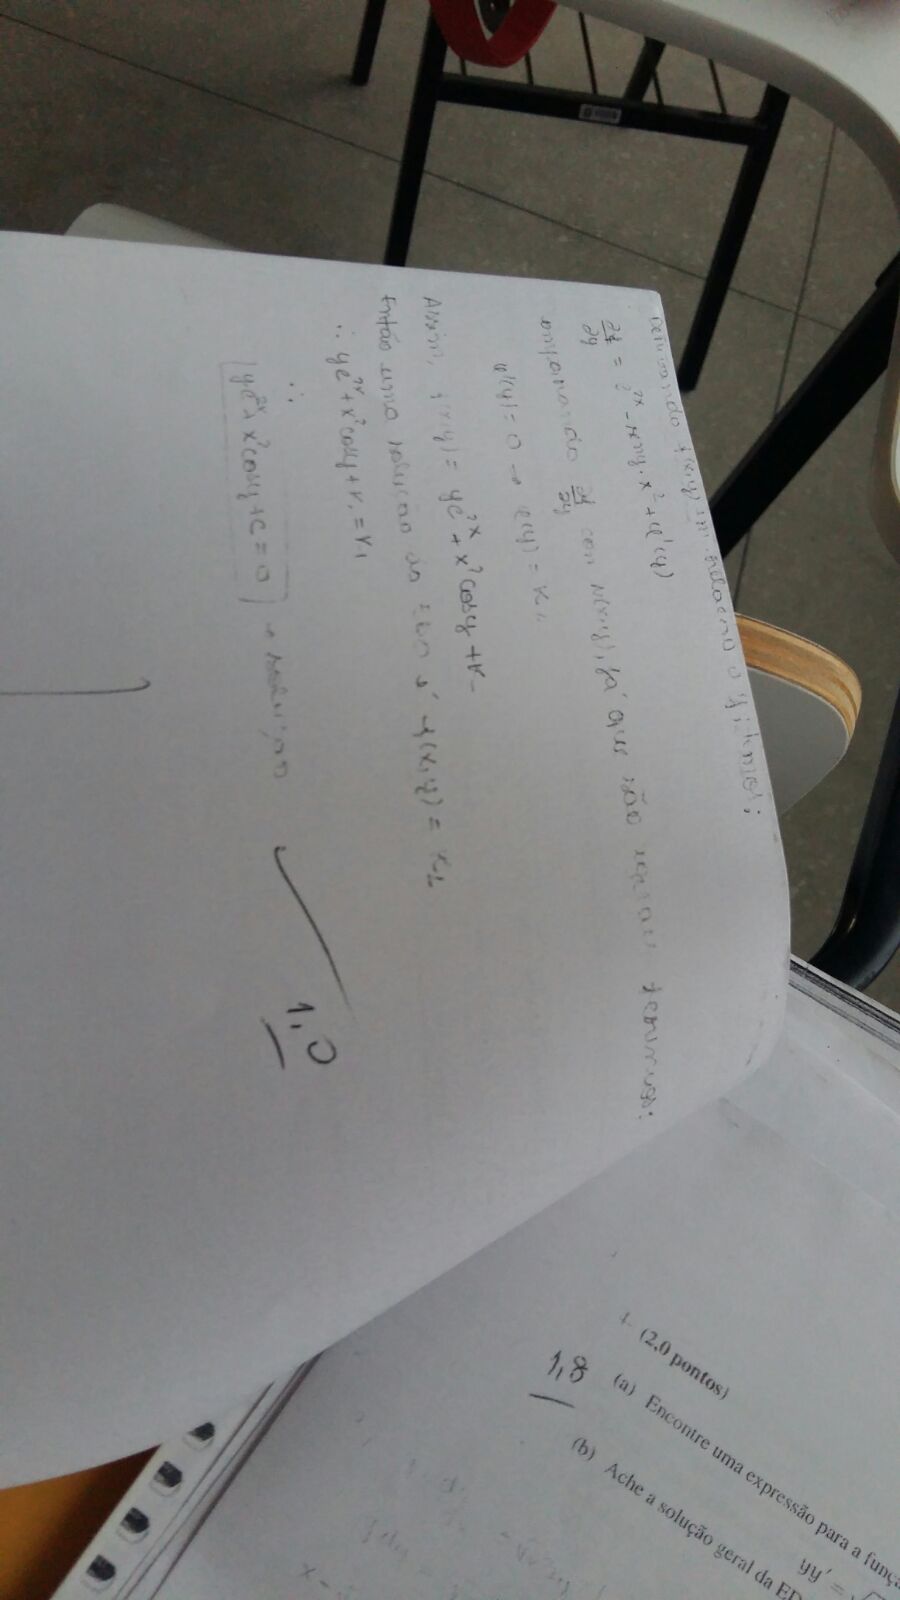 Derivando f(x,y) em relação a y, temos:
∂f/∂y = e²ˣ - seny · x² + φ'(y)
comparando ∂f/∂y com N(x,y), já que são iguais teremos:
φ'(y) = 0 → φ(y) = K₁,
Assim, f(x,y) = ye²ˣ + x²cosy + K₁
Então uma solução da EDO é f(x,y) = K₂
∴ ye²ˣ + x²cosy + K₁ = K₂
∴
ye²ˣ + x²cosy + C = 0 → solução
1,0
(2,0 pontos)
1,8
(a) Encontre uma expressão para a funçã
yy' =
(b) Ache a solução geral da ED